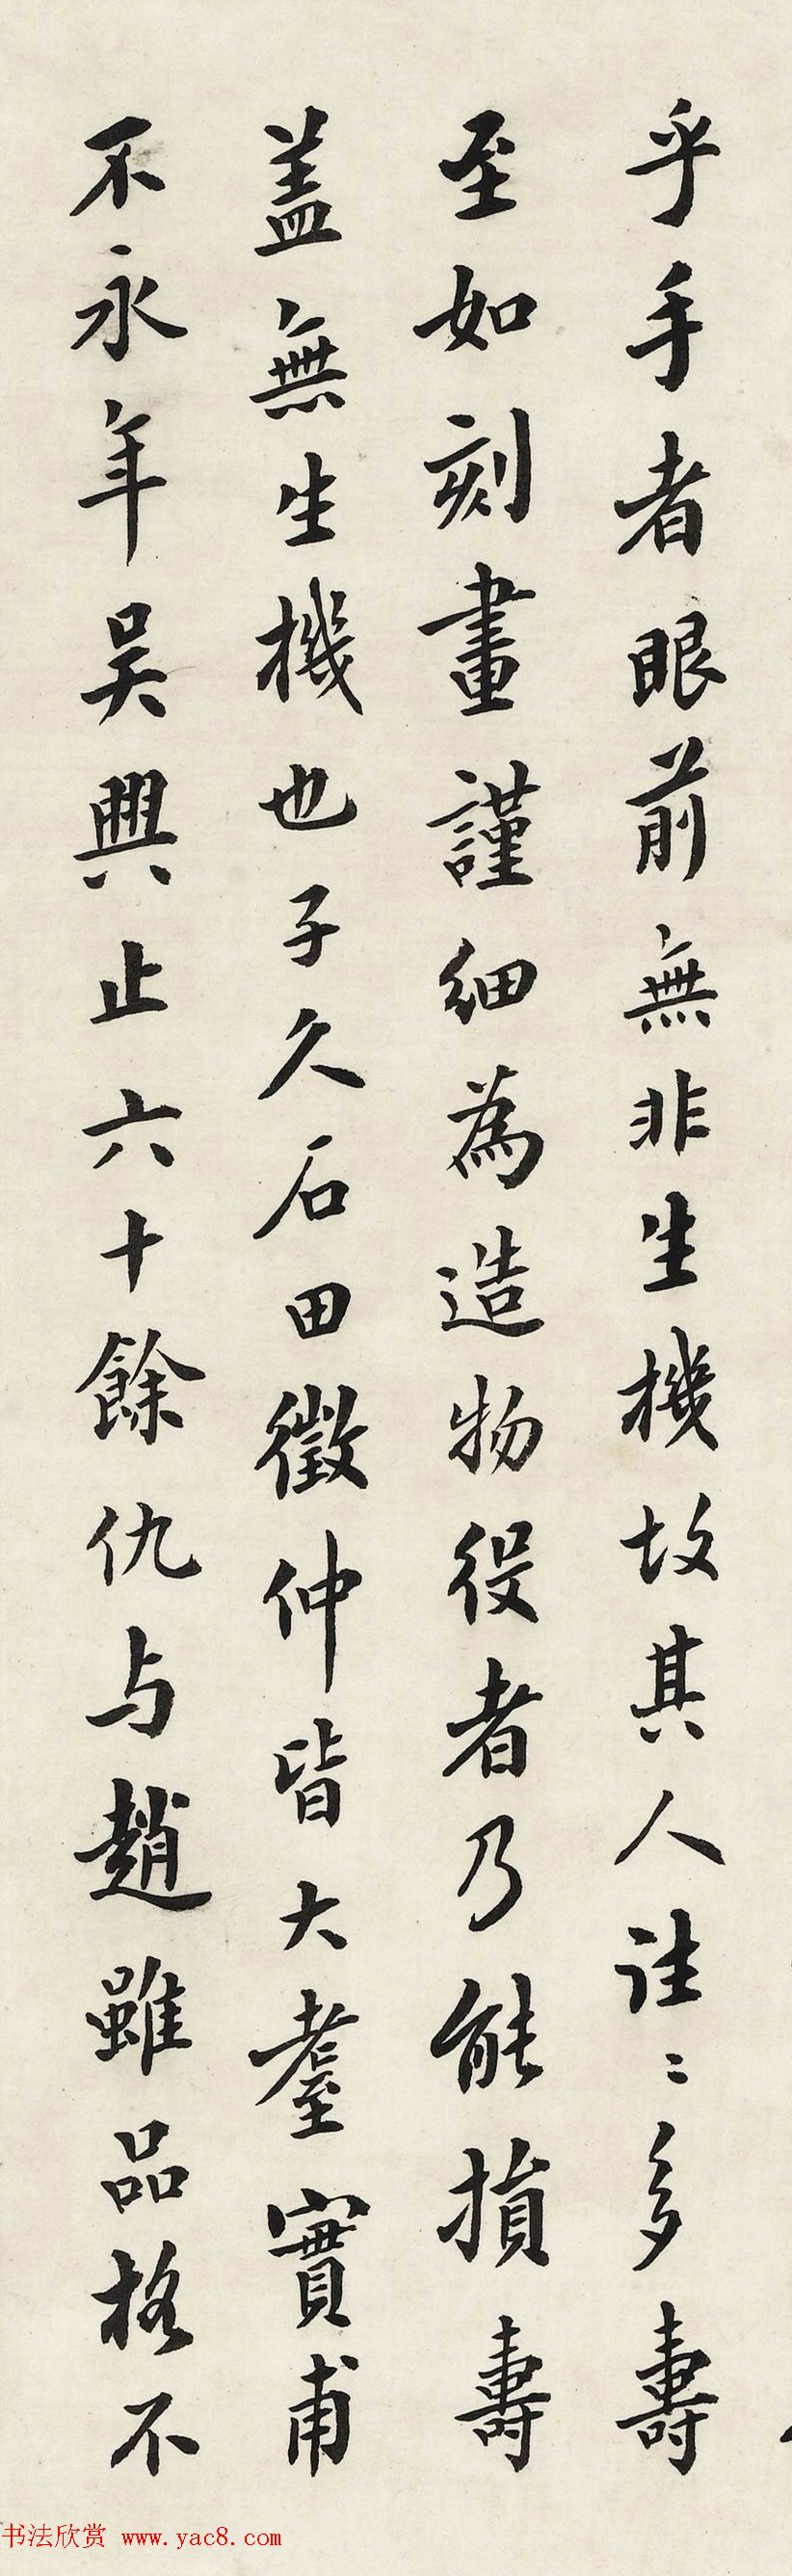 乎手者眼前無非生機故其人往〻多壽
至如刻畫謹細為造物役者乃能損壽
蓋無生機也子久石田徵仲皆大耋實甫
不永年吴興止六十餘仇与趙雖品格不
书法欣赏 www.yac8.com